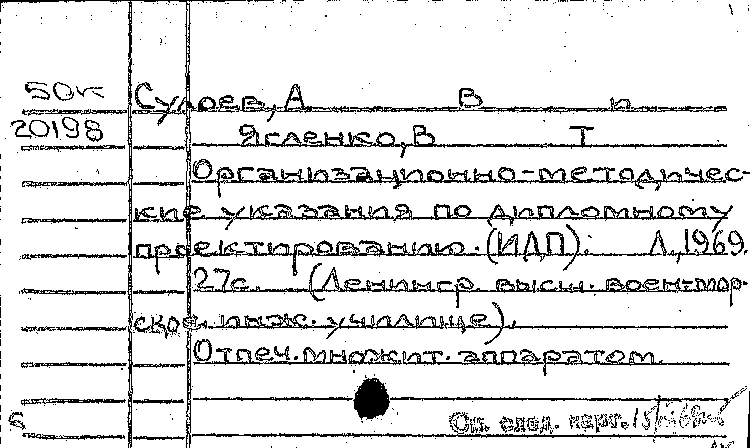 50к
20198
Сулоев, А В п
Ягленко, В Т
Организационно-методичес-
кие указания по дипломному
проектированию. (ИДП). Л., 1969.
27с. (Ленингр. высш. воен-мор-
ское инж. училище).
Отпеч. множит. аппаратом.
См. след. карт.
6